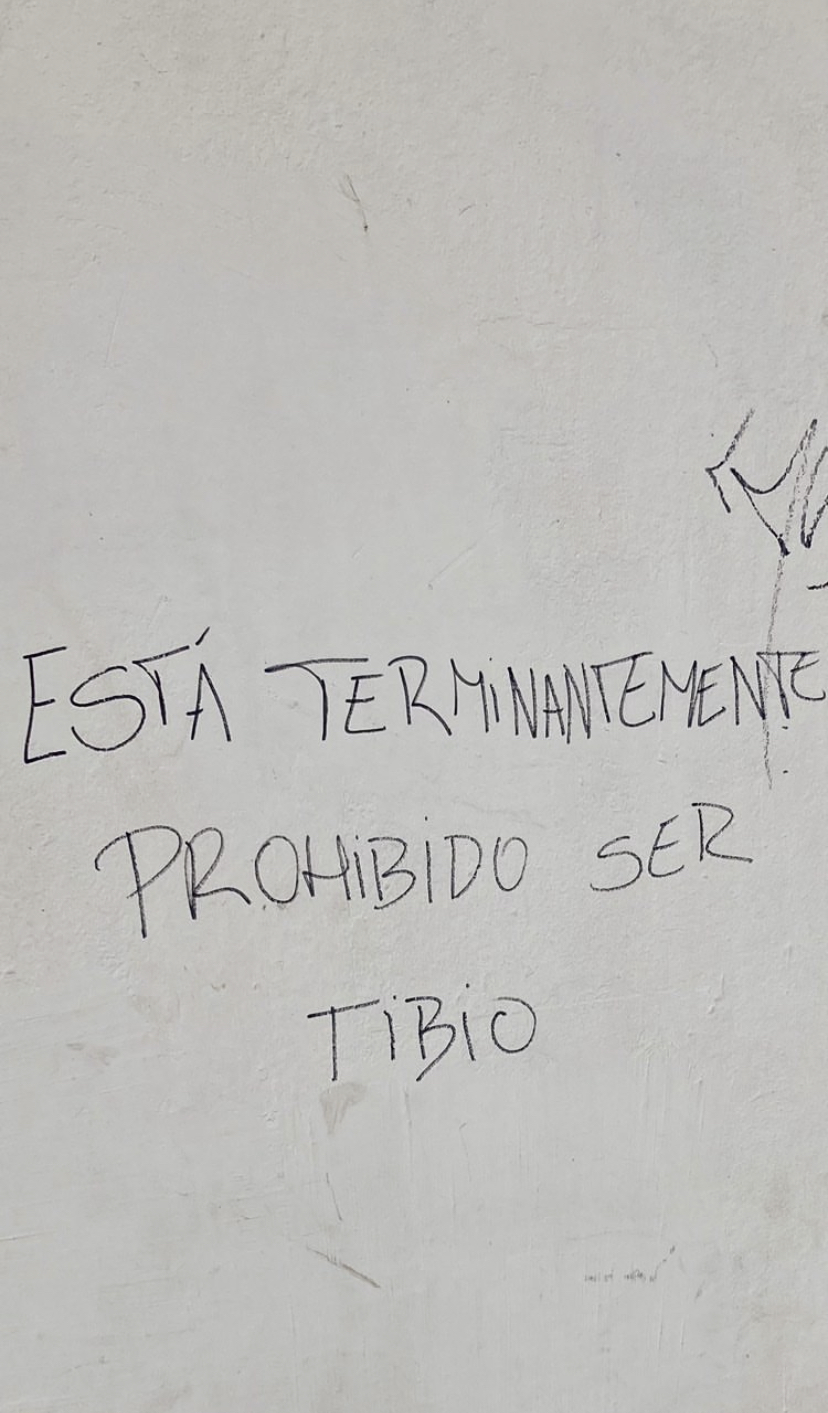 ESTÁ TERMINANTEMENTE
PROHIBIDO SER
TIBIO